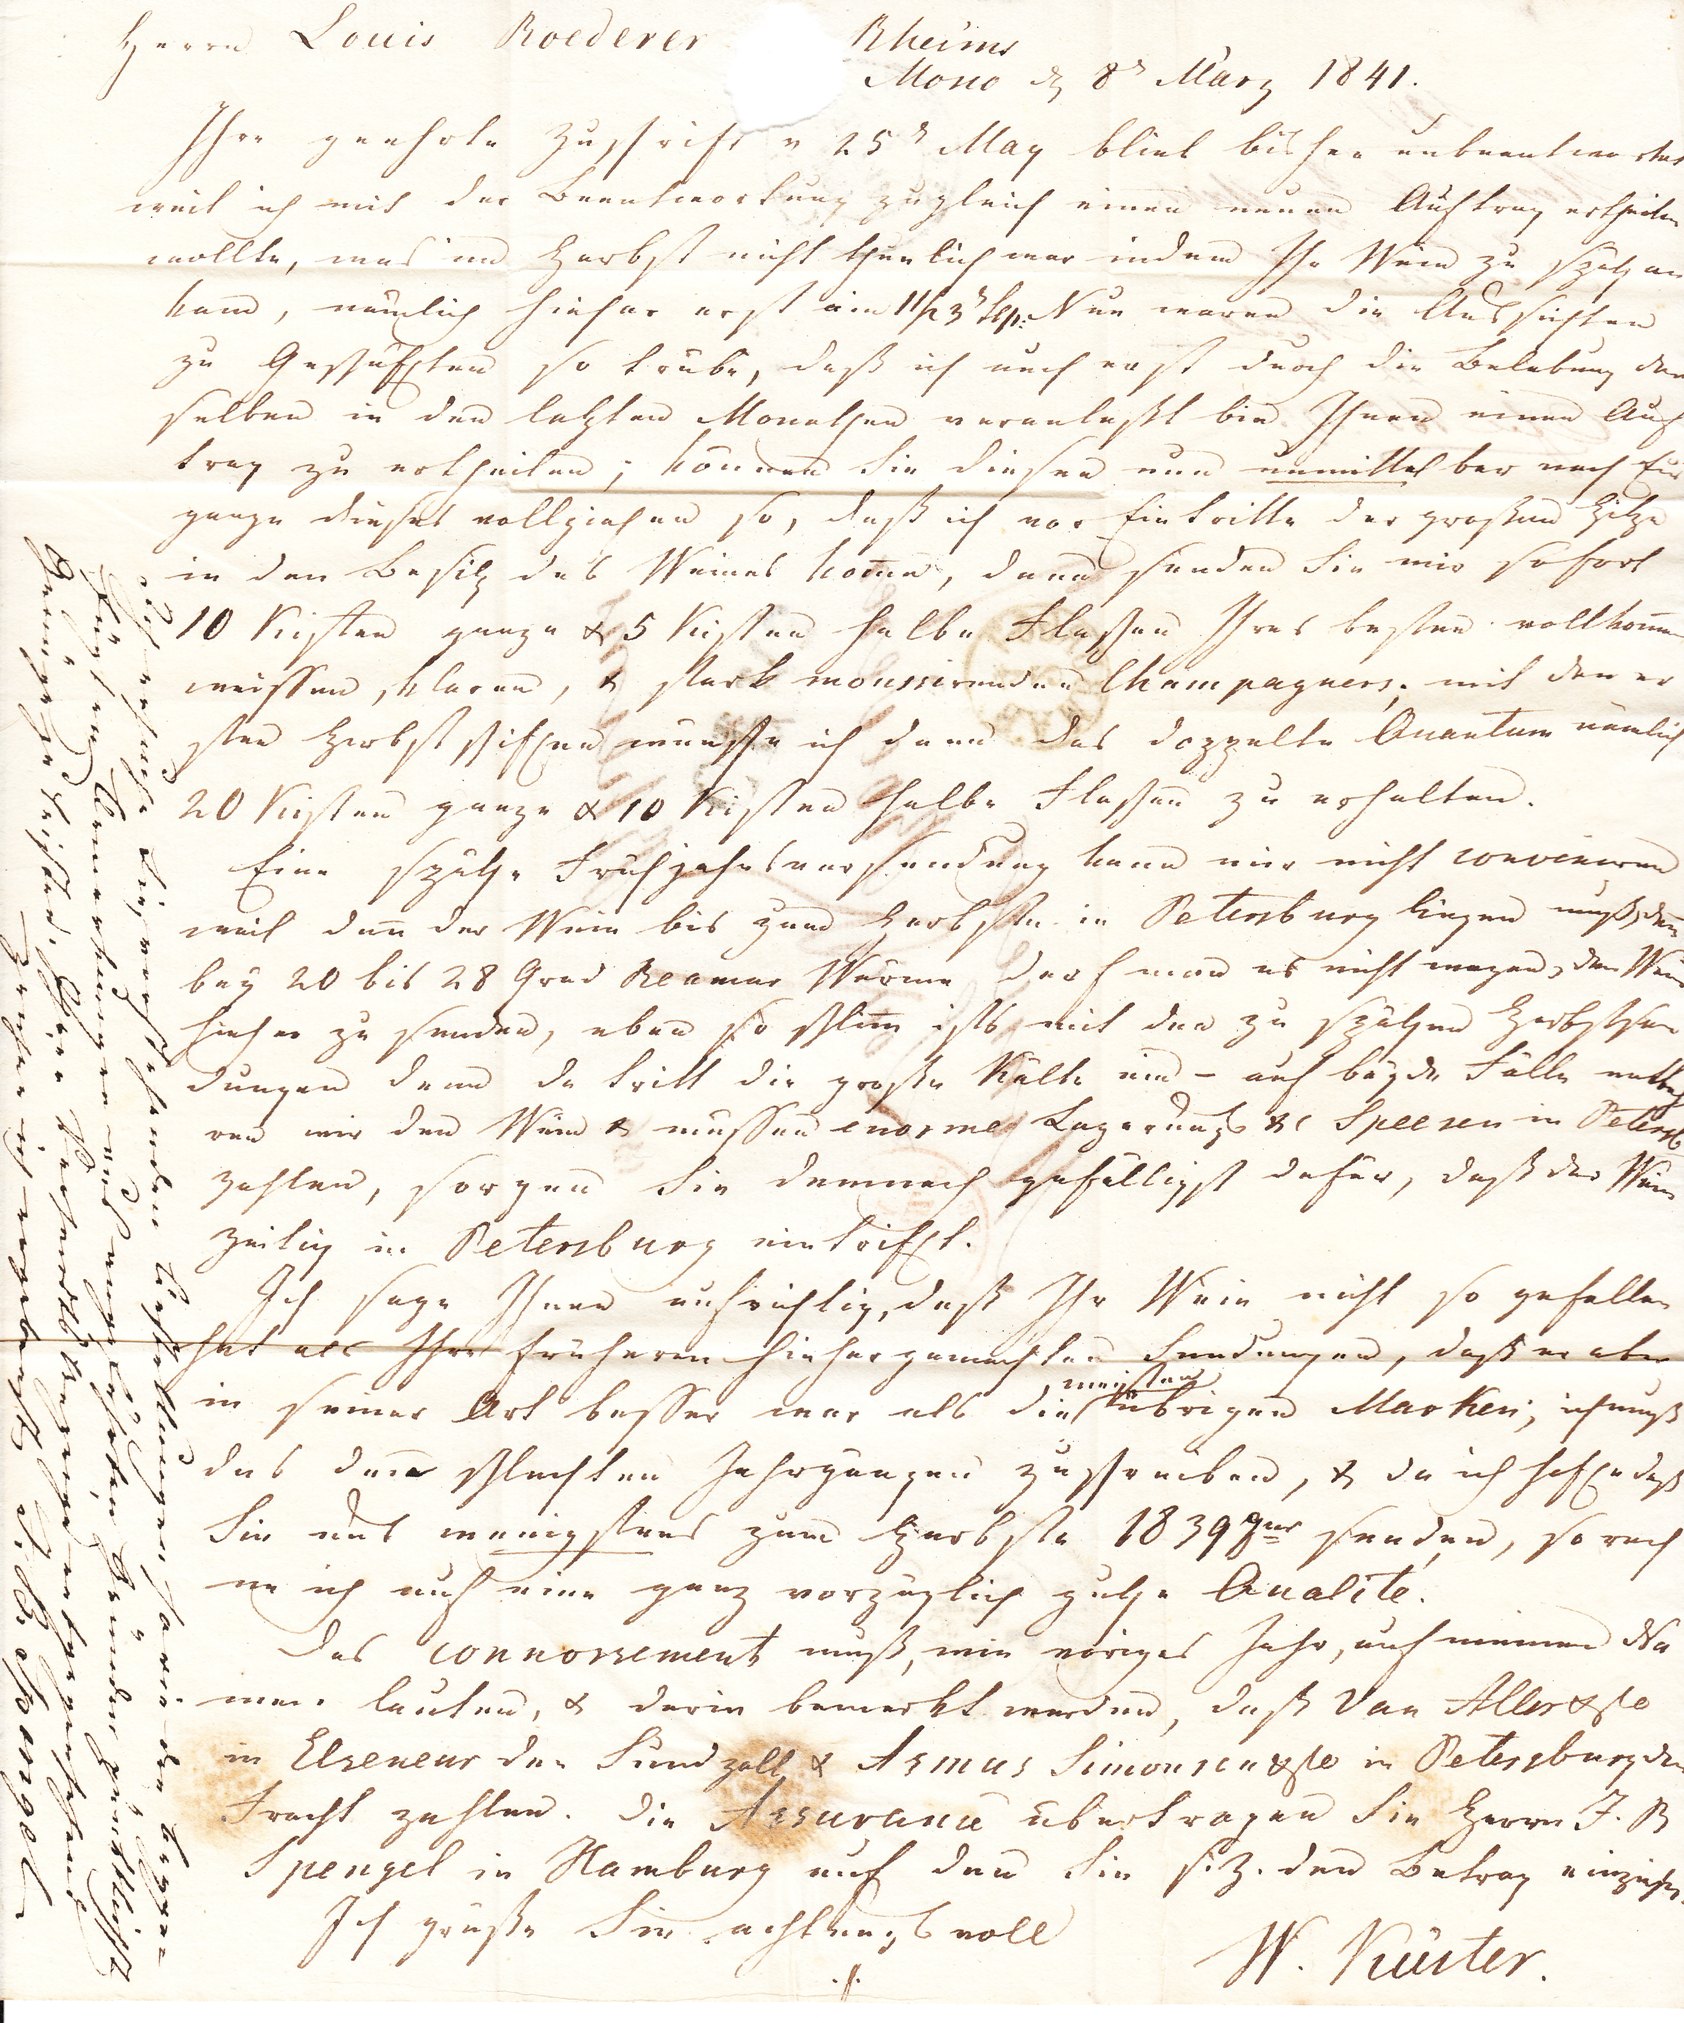 Herrn Louis Roederer Rheims
Mosco d 8n März 1841.
Ihre geehrte Zuschrift v 25n May blieb bisher unbeantwortet
weil ich mit der Beantwortung zugleich einen neuen Auftrag ertheilen
wollte, was im Herbst nicht thunlich war indem Ihr Wein zu spät an
kam, nämlich hieher erst am 11/23n Sep: Nun waren die Aussichten
zu Geschäften so trübe, daß ich auch erst durch die Belebung der
selben in den letzten Monathen veranlaßt bin Ihnen einen Auf
trag zu ertheilen; können Sie diesen nun unmittelbar nach Ein
gange dieses vollziehen so, daß ich vor Eintritte der großen Hitze
in den Besitz des Weines kome, dann senden Sie mir sofort
10 Kisten ganze & 5 Kisten halbe Flaschen Ihres besten vollkomen
weissen, klaren, & stark moussirenden Champagners; mit den er
sten Herbstschiffen wünsche ich dann das doppelte Quantum nämlich
20 Kisten ganze & 10 Kisten halbe Flaschen zu erhalten.
Eine späthe Frühjahrsversendung kann mir nicht conveniren
weil dan der Wein bis zum Herbste in Petersburg liegen muß, denn
bey 20 bis 28 Grad Reamur Wärme darf man es nicht wagen, den Wein
hieher zu senden, eben so schlim ists mit den zu späthen Herbstsen
dungen denn da tritt die große Kälte ein – auf beyde Fälle entbeh
ren wir den Wein & müssen enorme Lagerungs &c Speesen in Petersb
zahlen, sorgen Sie demnach gefälligst dafür, daß der Wein
zeitig in Petersburg eintrifft.
Ich sage Ihnen aufrichtig, daß Ihr Wein nicht so gefallen
hat als Ihre früheren hieher gemachten Sendungen, daß er aber
in seiner Art besser war als die meisten übrigen Marken; ich muß
das den schlechten Jahrgängen zuschreiben, & da ich hoffe daß
Sie uns wenigstens zum Herbste 1839ger senden, so rech
ne ich auf eine ganz vorzüglich guthe Qualité.
Das connossement muß, wie voriges Jahr, auf meinen Na
men lauten, & darin bemerkt werden, daß Van Aller & Co
in Elseneur den Sundzoll & Asmus Simonsen & Co in Petersburg die
Fracht zahlen. Die Assurance übertragen Sie Herrn J. B
Spengel in Hamburg auf den Sie s. Z. den Betrag einziehen.
Ich grüße Sie achtungsvoll
W. Küster.